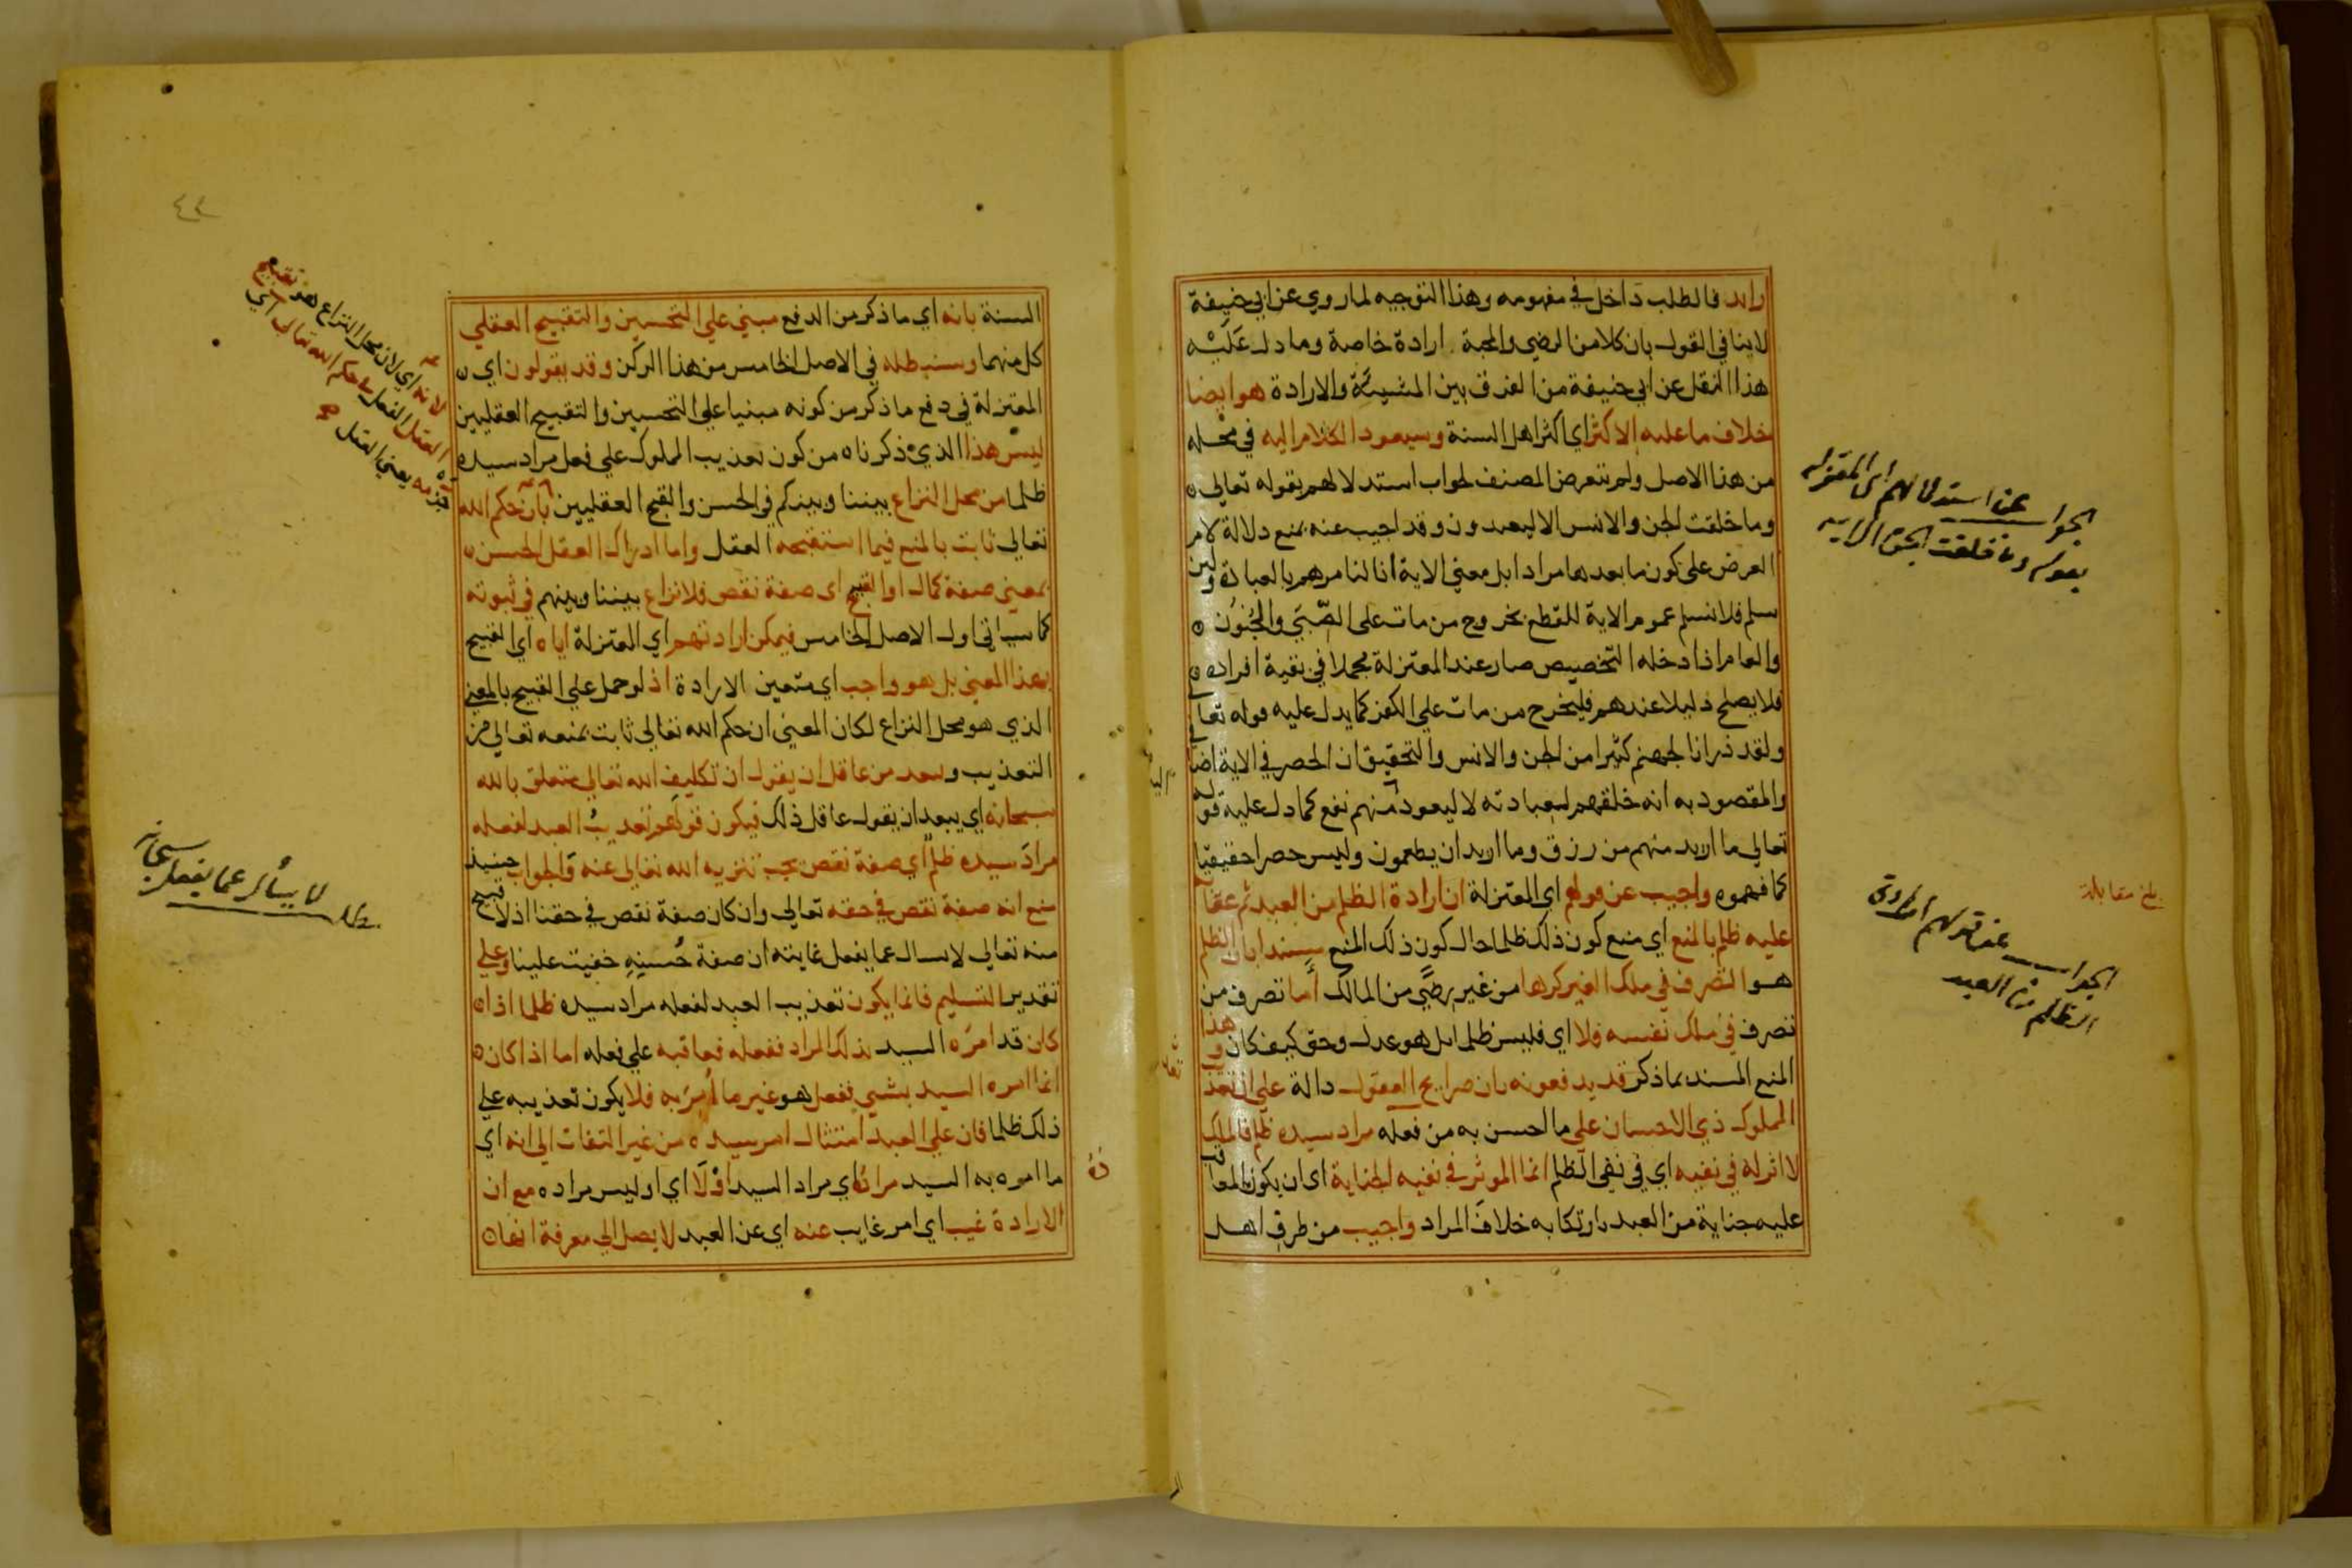 اراد فالطلب داخل في مفهومه وهذا التوجيه لما روي عن ابي حنيفة
لا ينافي القول بان كلا من الرضي والمحبة ارادة خاصة وما دل عَلَيْه
هذا النقل عن ابي حنيفة من الفرق بين المشيئة والارادة هو ايضا
خلاف ما عليه الاكثر اي اكثر اهل السنة وسيعود الكلام اليه في محله
من هذا الاصل ولم يتعرض المصنف لجواب استدلالهم بقوله تعالى
وما خلقت الجن والانس الا ليعبدون وقد اجيب عنه بمنع دلالة لام
الغرض على كون ما بعدها مرادا بل معني الاية انا لنامرهم بالعبادة ولين
سلم فلا نسلم عموم الاية للقطع بخروج من مات على الصّبَي والجُنون
والعام اذا دخله التخصيص صار عند المعتزلة مجملا في بقية افراده
فلا يصلح دليلا عندهم فليخرج من مات علي الكفر كما يدل عليه قوله تعالي
ولقد ذرانا لجهنم كثيرا من الجن والانس والتحقيق ان الحصر في الاية اضا
والمقصود به انه خلقهم لعبادته لا ليعود منهم نفع كما دل عليه قوله
تعالي ما اريد منهم من رزق وما اريد ان يطعمون وليس حصرا حقيقيا
كما فهموه واجيب عن قولهم اي المعتزلة ان ارادة الظلم من العبد ثم عقا
عليه ظلم بالمنع اي منع كون ذلك ظلما حال كون ذلك المنع سندا بان الظلم
هو التصرف في ملك الغير كرها من غير رضًي من المالك أما تصرف من
تصرف في ملك نفسه فلا اي فليس ظلما بل هو عدل وحق كيف كان وهذا
المنع المسند بما ذكر قد يدفعونه بان صرايح العقول دالة علي ان تعذ
المملوك ذي الاحسان علي ما احسن به من فعله مراد سيده ظلم فالملك
لا اثر له في نفيه اي في نفي الظلم انما الموثر في نفيه الجناية اي ان يكون المعاقب
عليه جناية من العبد بارتكابه خلاف المراد واجيب من طرف اهل
الجواب عن استدلالهم اي المعتزله
بقوله وما خلقت الجن الايه
بلغ مقابلة
الجواب عن قولهم ارادة
الظلم من العبد
٤٢
السنة بانه اي ما ذكر من الدفع مبني علي التحسين والتقبيح العقلي
كل منهما وسنبطله في الاصل الخامس من هذا الركن وقد يقولون اي
المعتزلة في دفع ما ذكر من كونه مبنيا علي التحسين والتقبيح العقليين
ليس هذا الذي ذكرناه من كون تعذيب المملوك علي فعل مراد سيده
ظلما من محل النزاع بيننا وبينكم في الحسن والقبح العقليين بان حكم الله
تعالي ثابت بالمنع فيما استقبحه العقل واما ادراك العقل الحسن
بمعني صفة كمال او القبح اي صفة نقص فلا نزاع بيننا وبينهم في ثبوته
كما سياتي اول الاصل الخامس فيمكن ارادتهم اي المعتزلة اياه اي القبيح
بهذا المعني بل هو واجب اي متعين الارادة اذ لو حمل علي القبيح بالمعني
الذي هو محل النزاع لكان المعني ان حكم الله تعالي ثابت بمنعه تعالي من
التعذيب وبعد من عاقل ان يقول ان تكليف الله تعالي متعلق بالله
سبحانه اي يبعد ان يقول عاقل ذلك فيكون قولهم تعذيبُ العبد لفعله
مرادَ سيده ظلم اي صفة نقص يجب تنزيه الله تعالي عنه والجواب حينيذ
منع انه صفة نقص في حقه تعالي وان كان صفة نقص في حقنا اذ لا قبيح
منه تعالي لا يسال عما يفعل غايته ان صفة حُسنِهِ خفيت علينا وعلي
تقدير التسليم فانما يكون تعذيب العبد لفعله مراد سيده ظلما اذا
كان قد امرَه السيد بذلك المراد ففعله فعاقبه علي فعله اما اذا كان
انما امره السيد بشي ففعل هو غير ما أُمِرَ به فلا يكون تعذيبه علي
ذلك ظلما فان علي العبد امتثال امر سيده من غير التفات الي انه اي
ما امره به السيد مرادُه اي مراد السيد اوْلا اي او ليس مراده مع ان
الارادة غيب اي امر غايب عنه اي عن العبد لا يصل الي معرفة انها
لانه اي لان محل النزاع هو تقبيح
العقل الفعل في حكم الله تعالى اي
يعني العقل
مطلب لا يسأل عما يفعل سبحانه